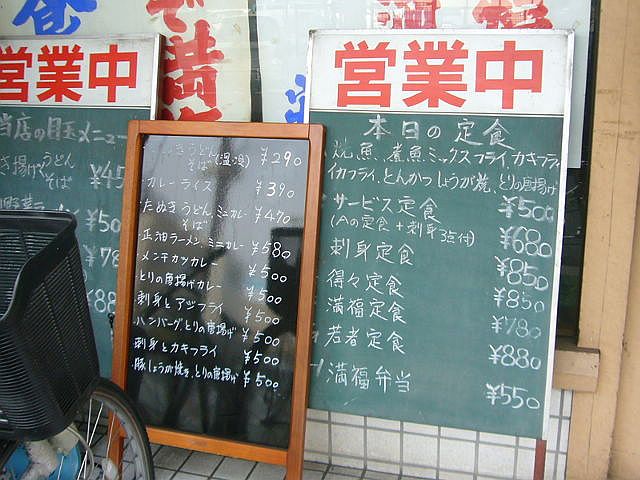 営業中
当店の目玉メニュー
き揚げうどん
そば ¥45
¥50
¥78
¥88
きうどん
そば(温・冷) ¥290
カレーライス ¥390
たぬきうどん、ミニカレー ¥470
そば
正油ラーメン、ミニカレー ¥580
メンチカツカレー ¥500
とりの唐揚げカレー ¥500
刺身とアジフライ ¥500
ハンバーグ、とりの唐揚げ ¥500
刺身とカキフライ ¥500
豚しょうが焼き、とりの唐揚げ ¥500
営業中
本日の定食
焼魚、煮魚、ミックスフライ、カキフライ
イカフライ、とんかつ、しょうが焼、とりの唐揚げ
¥500
サービス定食 ¥680
(Aの定食+刺身3点付)
刺身定食 ¥850
得々定食 ¥850
満福定食 ¥780
若者定食 ¥880
満福弁当 ¥550